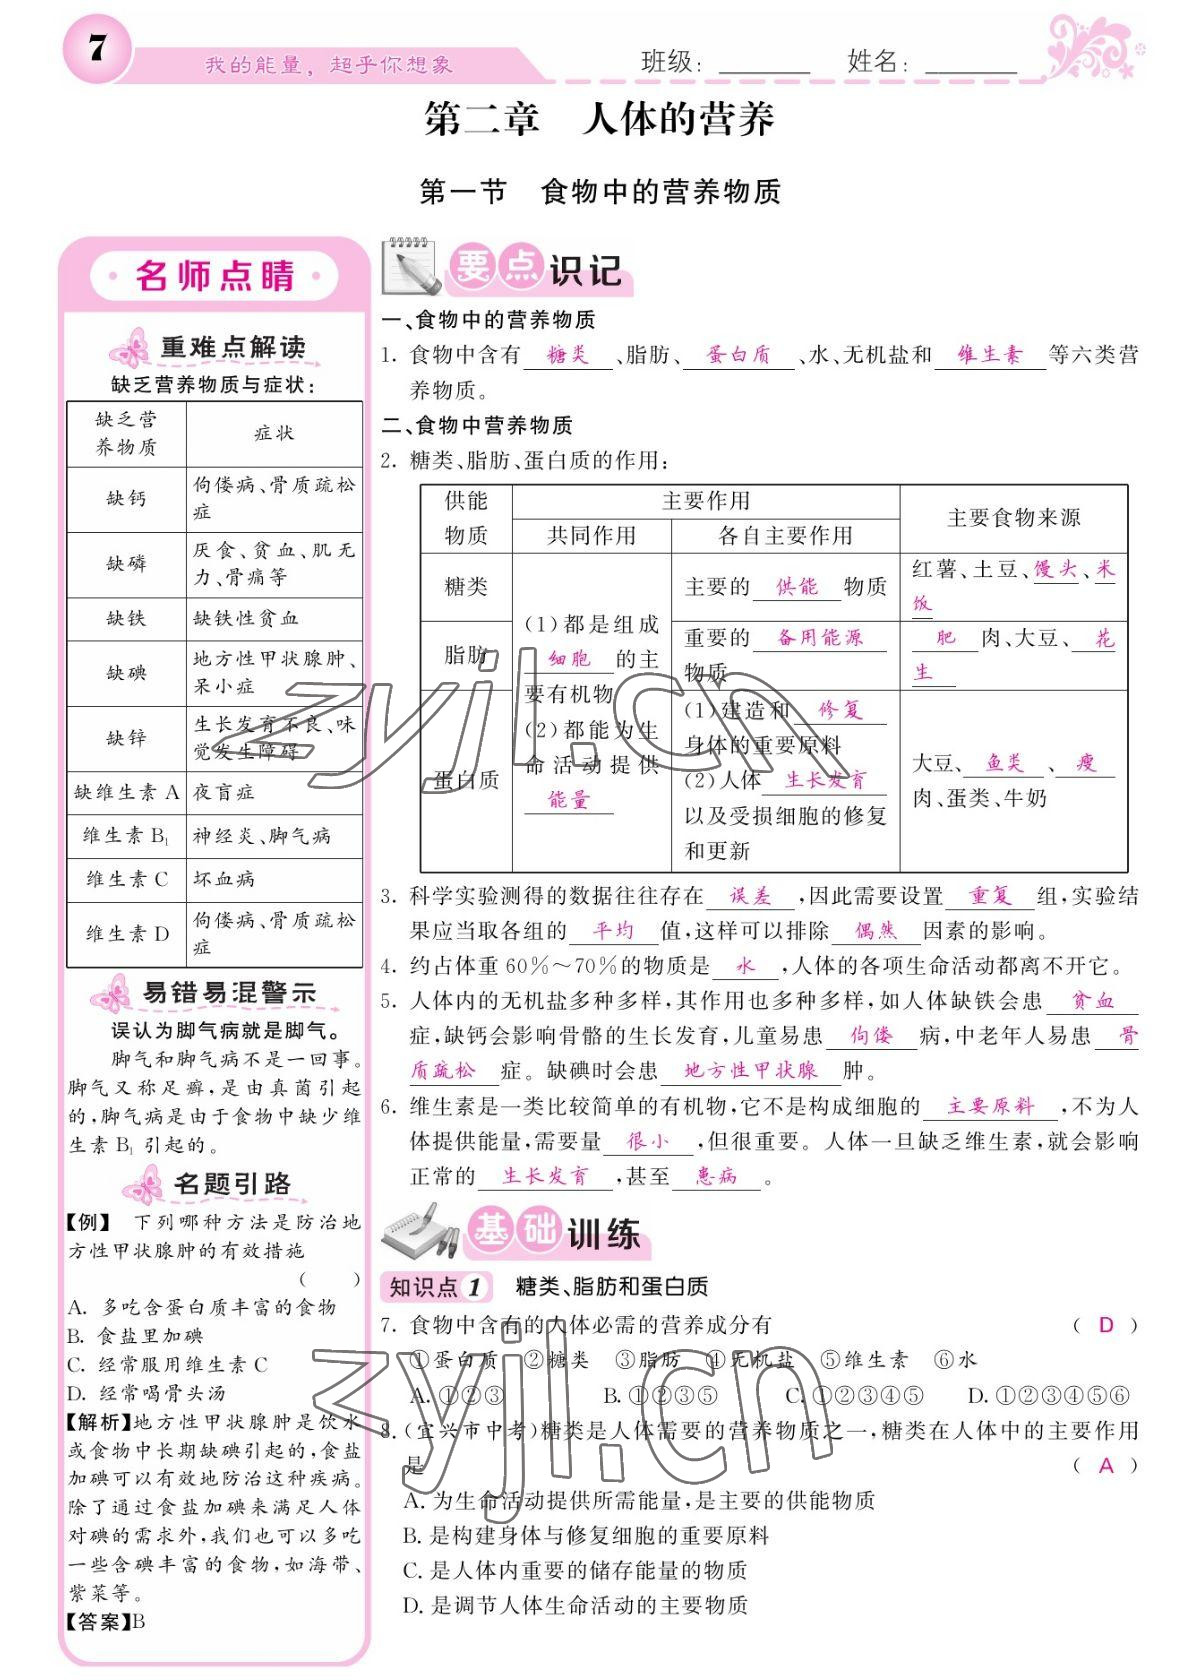 7
我的能量，超乎你想象
班级：
姓名：
第二章　人体的营养
第一节　食物中的营养物质
名师点睛
重难点解读
缺乏营养物质与症状：
缺乏营养物质 症状
缺钙 佝偻病、骨质疏松症
缺磷 厌食、贫血、肌无力、骨痛等
缺铁 缺铁性贫血
缺碘 地方性甲状腺肿、呆小症
缺锌 生长发育不良、味觉发生障碍
缺维生素 A 夜盲症
维生素 B₁ 神经炎、脚气病
维生素 C 坏血病
维生素 D 佝偻病、骨质疏松症
易错易混警示
误认为脚气病就是脚气。
脚气和脚气病不是一回事。
脚气又称足癣，是由真菌引起
的，脚气病是由于食物中缺少维
生素 B₁ 引起的。
名题引路
【例】 下列哪种方法是防治地
方性甲状腺肿的有效措施
（　　）
A. 多吃含蛋白质丰富的食物
B. 食盐里加碘
C. 经常服用维生素 C
D. 经常喝骨头汤
【解析】地方性甲状腺肿是饮水
或食物中长期缺碘引起的，食盐
加碘可以有效地防治这种疾病。
除了通过食盐加碘来满足人体
对碘的需求外，我们也可以多吃
一些含碘丰富的食物，如海带、
紫菜等。
【答案】B
要点识记
一、食物中的营养物质
1. 食物中含有 糖类 、脂肪、 蛋白质 、水、无机盐和 维生素 等六类营
养物质。
二、食物中营养物质
2. 糖类、脂肪、蛋白质的作用：
供能物质 主要作用 主要食物来源
共同作用 各自主要作用
糖类 主要的 供能 物质 红薯、土豆、馒头、米饭
(1)都是组成 细胞 的主要有机物 (2)都能为生命活动提供 能量
脂肪 重要的 备用能源 物质 肥 肉、大豆、 花生
蛋白质 (1)建造和 修复 身体的重要原料 (2)人体 生长发育 以及受损细胞的修复和更新 大豆、 鱼类 、 瘦 肉、蛋类、牛奶
3. 科学实验测得的数据往往存在 误差 ，因此需要设置 重复 组，实验结
果应当取各组的 平均 值，这样可以排除 偶然 因素的影响。
4. 约占体重 60%～70%的物质是 水 ，人体的各项生命活动都离不开它。
5. 人体内的无机盐多种多样，其作用也多种多样，如人体缺铁会患 贫血
症，缺钙会影响骨骼的生长发育，儿童易患 佝偻 病，中老年人易患 骨
质疏松 症。缺碘时会患 地方性甲状腺 肿。
6. 维生素是一类比较简单的有机物，它不是构成细胞的 主要原料 ，不为人
体提供能量，需要量 很小 ，但很重要。人体一旦缺乏维生素，就会影响
正常的 生长发育 ，甚至 患病 。
基础训练
知识点 1 糖类、脂肪和蛋白质
7. 食物中含有的人体必需的营养成分有 （ D ）
①蛋白质　②糖类　③脂肪　④无机盐　⑤维生素　⑥水
A. ①②③　B. ①②③⑤　C. ①②③④⑤　D. ①②③④⑤⑥
8. (宜兴市中考)糖类是人体需要的营养物质之一，糖类在人体中的主要作用
是 （ A ）
A. 为生命活动提供所需能量，是主要的供能物质
B. 是构建身体与修复细胞的重要原料
C. 是人体内重要的储存能量的物质
D. 是调节人体生命活动的主要物质
zyjl.cn
zyjl.cn